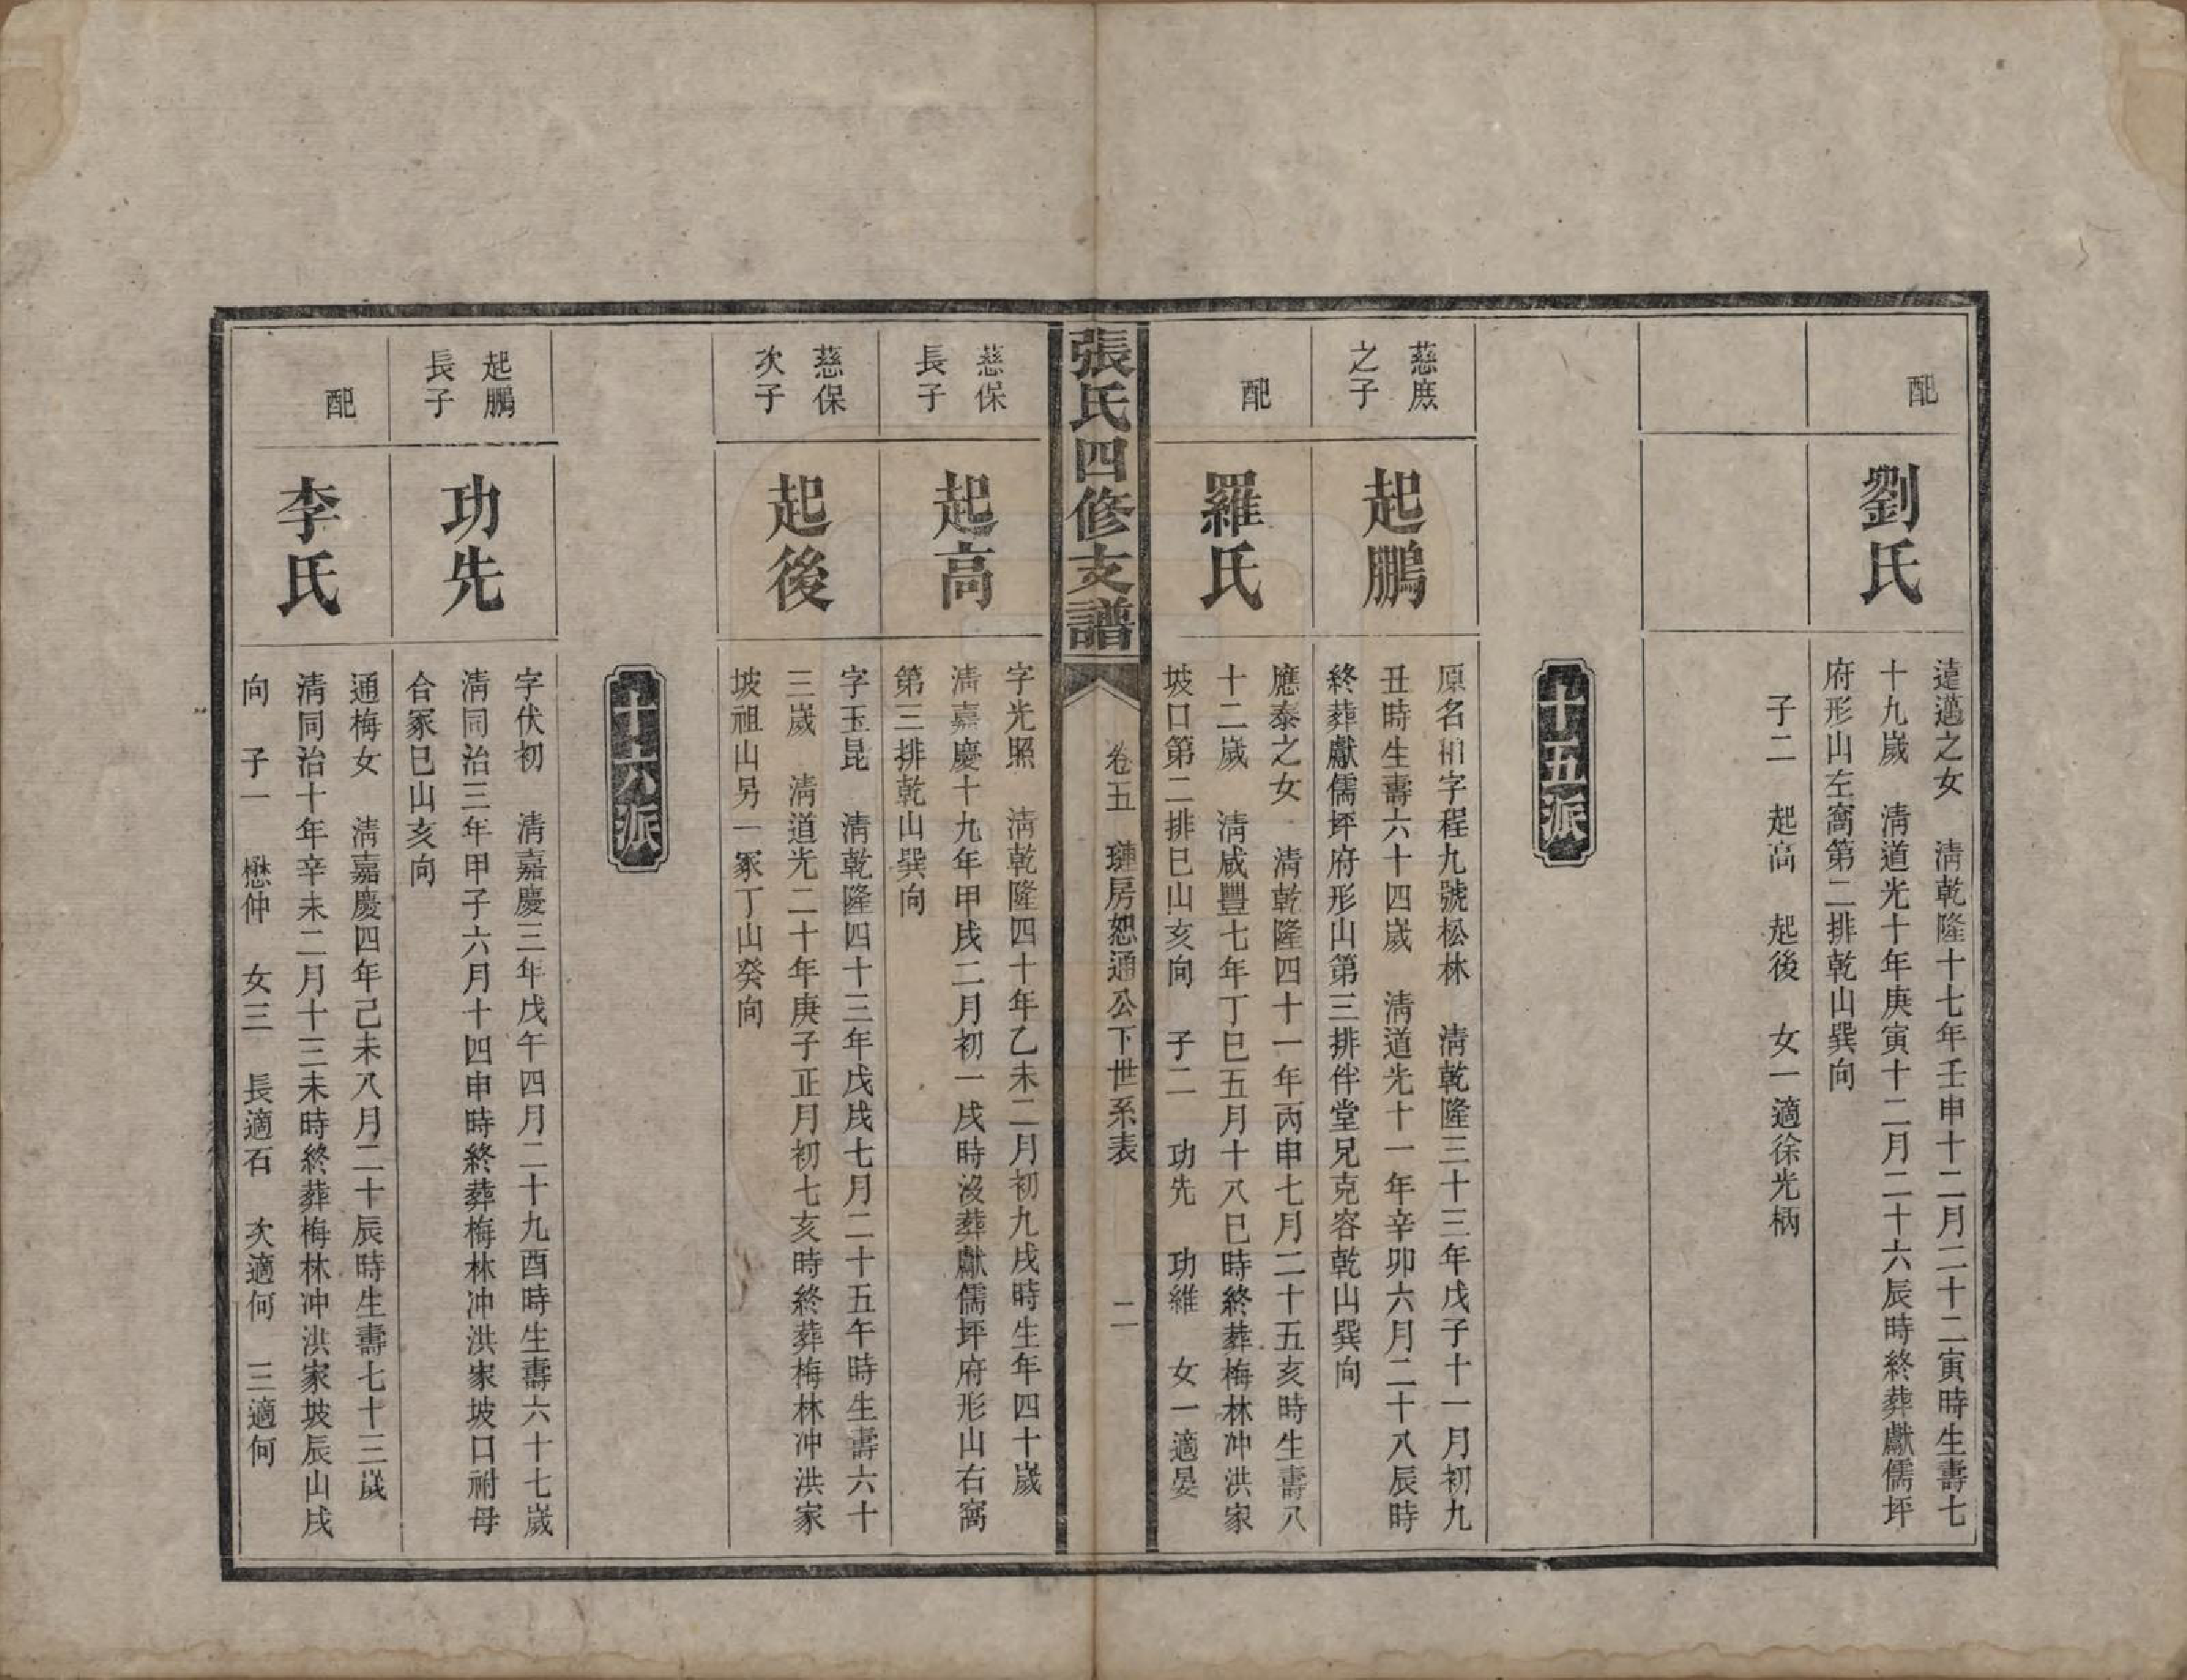 配
劉氏
違邁之女　清乾隆十七年壬申十二月二十二寅時生壽七
十九歲　清道光十年庚寅十二月二十六辰時終葬獻儒坪
府形山左窩第二排乾山巽向
子二　起高　起後　女一適徐光柄
十五派
慈庶
之子
起鵬
原名柏字程九號松林　清乾隆三十三年戊子十一月初九
丑時生壽六十四歲　清道光十一年辛卯六月二十八辰時
終葬獻儒坪府形山第三排伴堂兄克容乾山巽向
配
羅氏
應泰之女　清乾隆四十一年丙申七月二十五亥時生壽八
十二歲　清咸豐七年丁巳五月十八巳時終葬梅林冲洪家
坡口第二排巳山亥向　子二　功先　功維　女一適晏
張氏四修支譜
卷五　璉房恕通公下世系表
二
慈保
長子
起高
字光照　清乾隆四十年乙未二月初九戌時生年四十歲
清嘉慶十九年甲戌二月初一戌時沒葬獻儒坪府形山右窩
第三排乾山巽向
慈保
次子
起後
字玉昆　清乾隆四十三年戊戌七月二十五午時生壽六十
三歲　清道光二十年庚子正月初七亥時終葬梅林冲洪家
坡祖山另一冢丁山癸向
十六派
起鵬
長子
功先
字伏初　清嘉慶三年戊午四月二十九酉時生壽六十七歲
清同治三年甲子六月十四申時終葬梅林冲洪家坡口祔母
合冢巳山亥向
配
李氏
通梅女　清嘉慶四年己未八月二十辰時生壽七十三歲
清同治十年辛未二月十三未時終葬梅林冲洪家坡辰山戌
向　子一　懋仲　女三　長適石　次適何　三適何